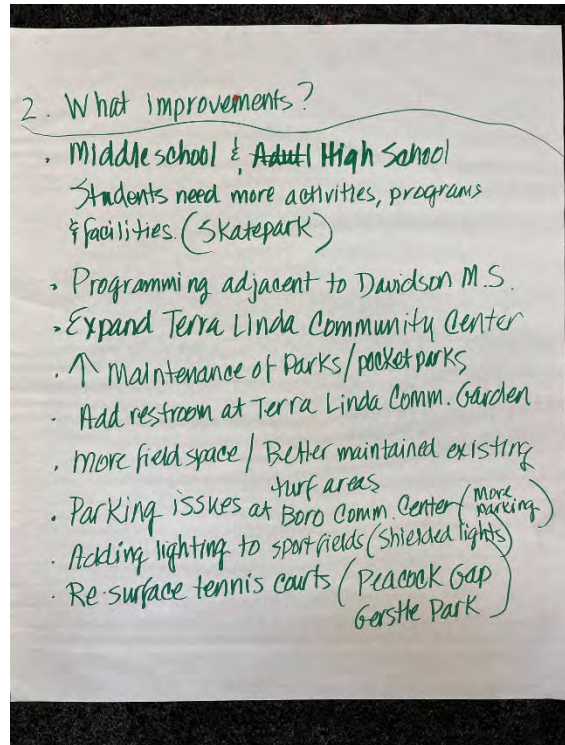 2. What improvements?
· Middle school & Adult High School
Students need more activities, programs
& facilities. (Skatepark)
· Programming adjacent to Davidson M.S.
· Expand Terra Linda Community Center
· ↑ Maintenance of Parks/pocket parks
· Add restroom at Terra Linda Comm. Garden
· More field space / Better maintained existing
turf areas
· Parking issues at Boro Comm. Center (More
parking)
· Adding lighting to sport fields (Shielded lights)
· Re-surface tennis courts (Peacock Gap
Gerstle Park)